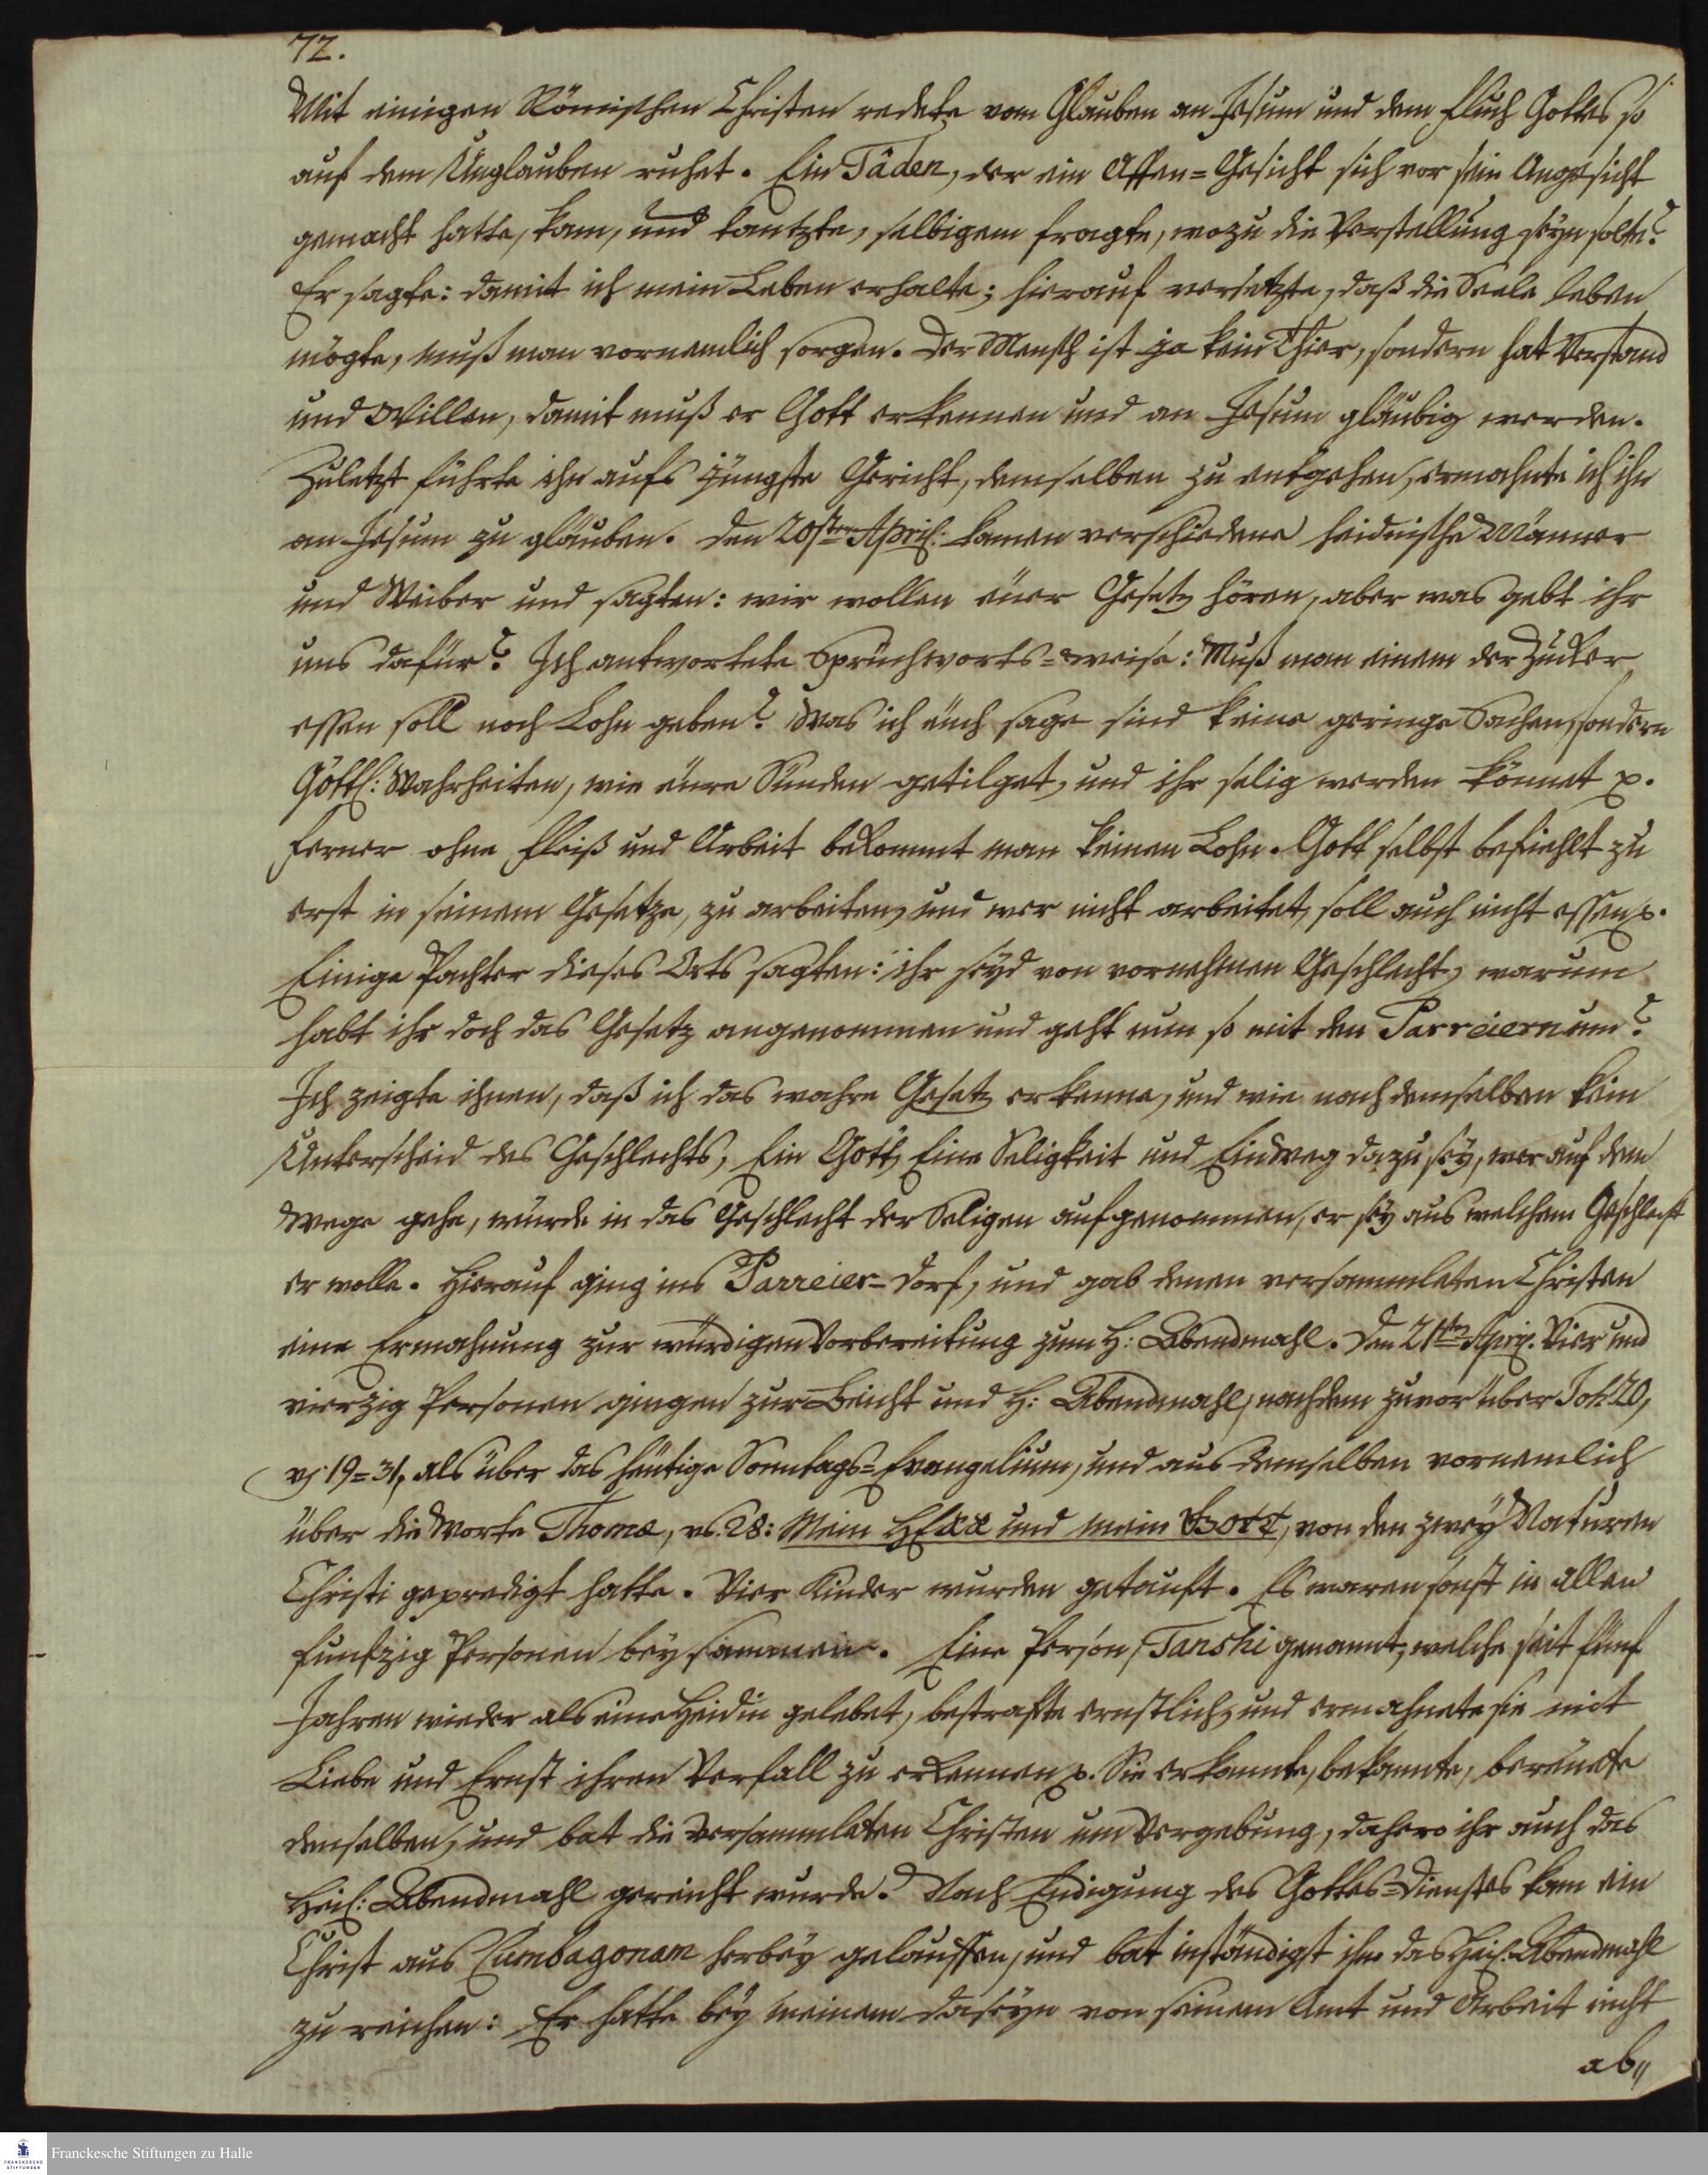 72.
Mit einigen Römischen Christen redete vom Glauben an Jesum und dem Fluch Gottes so
auf dem Unglauben ruhet. Ein Tâden, der ein Affen=Gesicht sich vor sein Angesicht
gemacht hatte, kam, und tantzte, selbigem fragte, wozu die Verstellung seyn solte?
Er sagte: damit ich mein Leben erhalte; hierauf versetzte, daß die Seele leben
mögte, muß man vornemlich sorgen. Der Mensch ist ja kein Thier, sondern hat Verstand
und Willen, damit muß er Gott erkennen und an Jesum gläubig werden.
Zuletzt führte ihn aufs jüngste Gericht, demselben zu entgehen, ermahnte ich ihn
an Jesum zu gläuben. Den 20sten April: kamen verschiedene heidnische Männer
und Weiber und sagten: wir wollen euer Gesetz hören, aber was gebt ihr
uns dafür? Ich antwortete Sprüchworts=weise: Muß man einem der Zucker
essen soll noch Lohn geben? Was ich euch sage sind keine geringe Sachen, sondern
Göttl: Wahrheiten, wie eure Sünden getilget, und ihr selig werden könnet p.
ferner ohne Fleiß und Arbeit bekommt man keinen Lohn. Gott selbst befiehlt zu
erst in seinem Gesetze, zu arbeiten, und wer nicht arbeitet, soll auch nicht essen p.
Einige Pachter dieses Orts sagten: ihr seyd von vornehmen Geschlecht, warum
habt ihr doch das Gesetz angenommen und geht nun so mit den Parreiern um?
Ich zeigte ihnen, daß ich das wahre Gesetz erkenne, und wie nach demselben kein
Unterscheid des Geschlechts, Ein Gott, Eine Seligkeit und Ein Weg dazu sey, wer auf dem
Wege gehe, würde in das Geschlecht der Seligen aufgenommen, er sey aus welchem Geschlecht
er wolle. Hierauf ging ins Parreier=Dorf, und gab denen versammleten Christen
eine Ermahnung zur würdigen Vorbereitung zum H: Abendmahl. Den 21ten April. Vier und
vierzig Personen gingen zur Beicht und H: Abendmahl, nachdem zuvor über Joh 20,
vs 19=31, als über das heutige Sonntags=Evangelium, und aus demselben vornemlich
über die Worte Thomæ, vs. 28: Mein HErr und mein Gott, von den zwey Naturen
Christi gepredigt hatte. Vier Kinder wurden getauft. Es waren sonst in allen
funfzig Personen beysammen. Eine Person, Tanshi genannt, welche seit fünf
Jahren wieder als eine Heidin gelebet, bestrafte ernstlich, und ermahnete sie mit
Liebe und Ernst ihren Verfall zu erkennen p. Sie erkannte, bekannte, bereuete
denselben, und bat die versammleten Christen um Vergebung, dahero ihr auch das
Heil: Abendmahl gereicht wurde. Nach Endigung des Gottes=Dienstes kam ein
Christ aus Cumbagonam herbey gelauffen, und bat inständigst ihm das Heil. Abendmahl
zu reichen: Er hatte bey meinem Daseyn von seinem Amt und Arbeit nicht
ab,,
Franckesche Stiftungen zu Halle